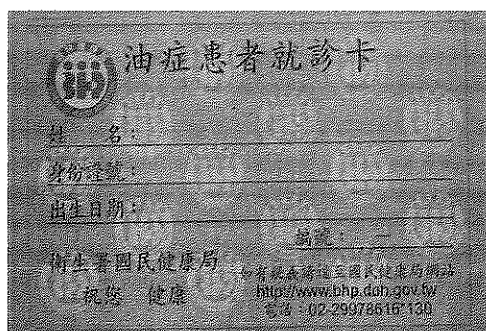 油症患者就診卡
姓 名：
身份證號：
出生日期：
編號： －
衛生署國民健康局
祝您 健康
如有疑義請逕至國民健康局網站
http://www.bhp.doh.gov.tw
電話：02-29978616*130